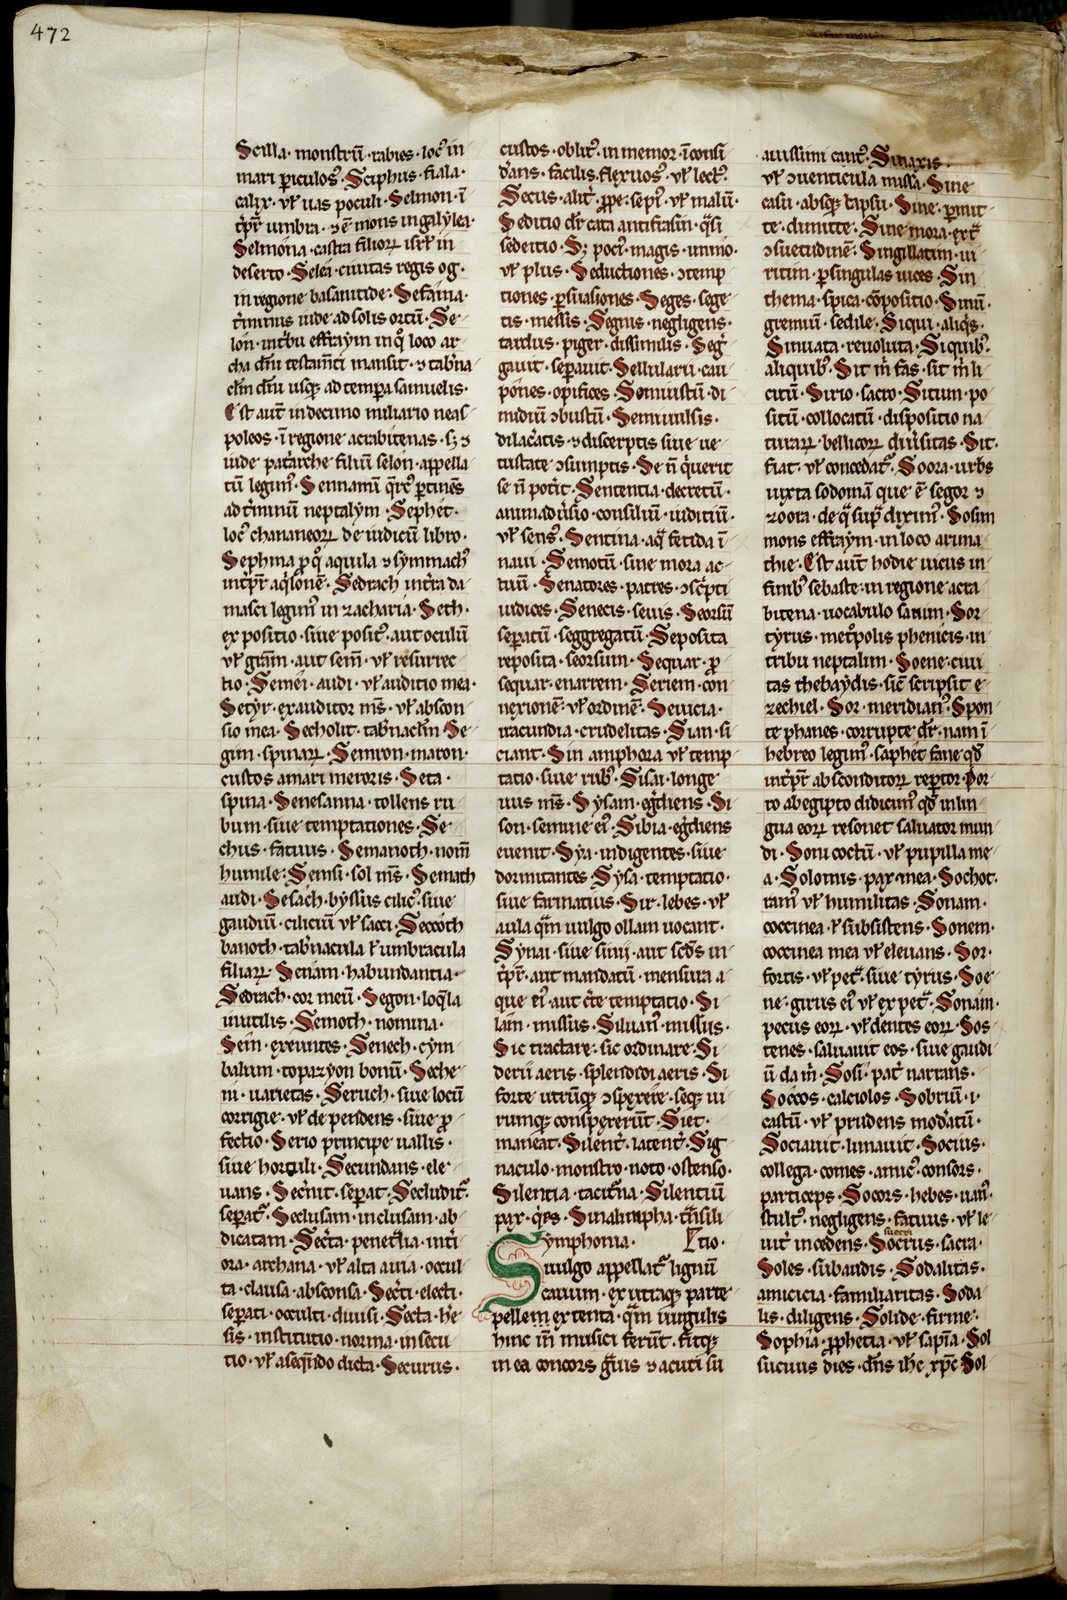 472
Scilla· monstrū· rabies· locꝰ in
mari ꝑiculosꝰ· Sciphus· fiala·
calix· vł uas poculi· Selmon· ī
t̄pr̄ umbra· ⁊ ē mons in galylea·
Selmona· castra filioꝝ isrł in
deserto· Selca· ciuitas regis og·
in regione basanitide· Sefama·
t̄minus iude ad solis ortū· Se-
lon· in t̄bu effraym in qͦ loco ar-
cha dn̄i testam̄ti mansit· ⁊ tab̄na-
clm̄ dn̄i usqꝫ ad temꝑa samuelis·
Est aut̄ in decimo miliario neas-
poleos· ī regione acrabitenas· sꝫ ⁊
iude pat̄arche filiū selon· appella-
tū legimꝰ· Sennamū qͥreꝰ ꝑtinēs
ad t̄minū neptalym· Sephet·
locꝰ chananeoꝝ de iudicū libro·
Sephma ꝓ qͦ aquila ⁊ symmachꝰ
int̄pr̄t aqͥlonē· Sedrach int̄ra da-
masci legimꝰ in zacharia· Seth·
ex positio· siue positꝰ· aut oculū
vł grām· aut sem̄· vł resurrec-
tio· Semei· audi· vł auditio mea·
Setyr· ex auditor ms̄· vł abscon-
sio mea· Secholit· tab̄nacłm Se-
gim· spinaꝝ· Semron· maron·
custos amari meroris· Seta·
spina· Senesanna· tollens ru-
bum· siue temptationes· Se-
chus· fatuus· Semanoth· nom̄
humile· Semsi· sol ms̄· Semath
audi· Sesach· byssus cilicꝰ· siue
gaudiū· ciliciū vł sacci· Seccoth
banoth· tab̄nacula ł umbracula
filiaꝝ· Senam· habundantia·
Sedrach· cor meū· Segon· loqͣla
inutilis· Semoth· nomina·
Sem· exeuntes· Senech· cym-
balum· topazyon bonū· Seche-
ni· uarietas· Seruch· siue locū
corrigie· vł de pendens· siue ꝑ-
fectio· Serio principe uallis·
siue hortuli· Secundans· ele-
uans· Sec̄nit· seꝑat· Secludit̄·
seꝑat̄· Seclusam· inclusam· ab-
dicatam· Sec̄ta· penet̄lia· int̄i-
ora· archana· vł alta aula· occul-
ta· clausa· absconsa· Sec̄ti· electi·
seꝑati· occulti· diuisi· Secta· he-
sis· institutio· norma· in secu-
tio· vł aseqͣndo dicta· Securus·
custos· oblitꝰ· in memor· īconsi-
d̄ans· facilis· flexuosꝰ· vł lectꝰ·
Secus· alit̄· ꝓpe· sepiꝰ· vł malū·
Seditio dr̄ cata antifrasin· qͣsi
sedeitio· Sꝫ pociꝰ· magis· immo·
vł plus· Seductiones· ↄtemp-
tiones· ꝑsuasiones· Seges· sege-
tis· messis· Segnis· negligens·
tardus· piger· dissimilis· Seḡ-
gauit· seꝑauit· Sellularii· cau-
pones· opifices· Semiustū· di-
midiū ↄbustū· Semiuulsis·
dilac̄atis· ⁊ disceꝑtis siue ue-
tustate ↄsumptis· Se n̄ qͣerit
se n̄ potit̄· Sententia· decretū·
animadūsio· consiliū· iuditiū·
vł sensꝰ· Sentina· aqͣ fetida ī
naui· Semotū· sine mora ac-
tuū· Senatores· patres· ↄsc̄pti
iudices· Senecis· seuis· Seorsū
seꝑatū· seggregatū· Seposita
reposita· seorsum· Sequar· ꝓ-
sequar· enarrem· Seriem· con-
nexionē· vł ordinē· Seuicia·
iracundia· crudelitas· Sian· si-
ciant· Sin amphora vł temp-
tatio· siue rubꝰ· Sisai· longe-
uus ms̄· Sysam· eḡdiens· Si-
son· semnie eiꝰ· Sibia· eḡdiens
euenit· Sya· indigentes· siue
dormitantes· Sysa· temptatio·
siue farinatius· Sir· lebes· vł
aula qͣm uulgo ollam uocant·
Synai· siue sinij· aut scd̄s in-
t̄pr̄· aut mandatū· mensura a-
que eiꝰ· aut c̄te temptatio· Si-
lam· missus· Siluanꝰ· missus·
Sic tractare· sic ordinare· Si-
derii aeris· splendidi aeris· Si
forte utrūqꝫ ↄsꝑxere· seqꝫ ui-
rumqꝫ consperxerūt· Siet·
maneat· Silent̄· latent̄· Sig-
naculo· monstro· noto· ostenso·
Silentia· tacit̄na· Silentiū
pax· qͥes· Sinalimpha· t̄nsili-
Symphonia· tio·
uulgo appellat̄ lignū
cauum· ex utraqꝫ parte
pellem extenta· qͣm uirgulis
hinc in̄ musici feriūt· fitqꝫ
in ea concors gͣuis ⁊ acuti su-
auissimi cantꝰ· Sinaxis·
vł ↄuenticula missa· Sine
casu· absqꝫ lapsu· Sine· ꝑmit-
te· dimitte· Sine mora· ext̄
ↄsuetudinē· Singillatim· ui-
ritim· ꝑ singulas uices· Sin-
thema· spica· cōpositio· Sinū·
gremiū· sedile· Siqui· aliqͥs·
Sinuata· reuoluta· Siquibꝰ·
aliquibꝰ· Sit m̄ fas· sit m̄ li-
citū· Sirio· sacro· Situm· po-
sitū· collocatū· dispositio na-
turaꝝ· bellicoꝝ diūsitas· Sit·
fiat· vł concedat̄· Soora· urbs
iuxta sodomā que ē segor ⁊
zoora· de qͣ sup̄ dixiꝰ· Sosim
mons effraym· in loco arima-
thie· Est aut̄ hodie uicus in
finibꝰ sebaste· in regione acra-
bitena· uocabulo sarum· Sor·
tyrus· met̄polis phenicis· in
tribu neptalim· Soene· ciui-
tas thebaydis· sic̄ scripsit e-
zechiel· Sor· meridianꝰ· Spon-
te phanes· corrupte dr̄· nam ī
hebreo legimꝰ· saphet fane qđ
int̄pr̄t absconditoꝝ reꝑtor· Por-
ro ab egipto didicimꝰ qđ in lin-
gua eoꝝ resonet saluator mun-
di· Soni coctū· vł pupilla me-
a· Solomis· pax mea· Sochot·
ramꝰ vł humilitas· Sonam·
coccinea· ł subsistens· Sonem·
coccinea mea vł eleuans· Sor·
fortis· vł pet̄· siue tyrus· Soe-
ne· girus eiꝰ vł ex pet̄· Sonam·
pecus eoꝝ· vł dentes eoꝝ· Sos-
tenes· saluauit eos· siue gaudi-
ū da m̄· Sosi· pat̄ narrans·
Soccos· calciolos· Sobriū· i·
castū· vł prudens mod̄atū·
Sociauit· limauit· Socius·
collega· comes· amicꝰ· consors·
particeps· Socors· hebes· uanꝰ·
stultꝰ· negligens· fatuus· vł le-
uit̄ incedens· Socrus· sacra·
Soles· subaudis· Sodalitas·
amicicia· familiaritas· Soda-
lis· diligens· Solide· firme·
Sophia· ꝓphetia· vł sapīa· Sol
sucuus dies· dn̄s ihc̄ xpc̄· Sol-